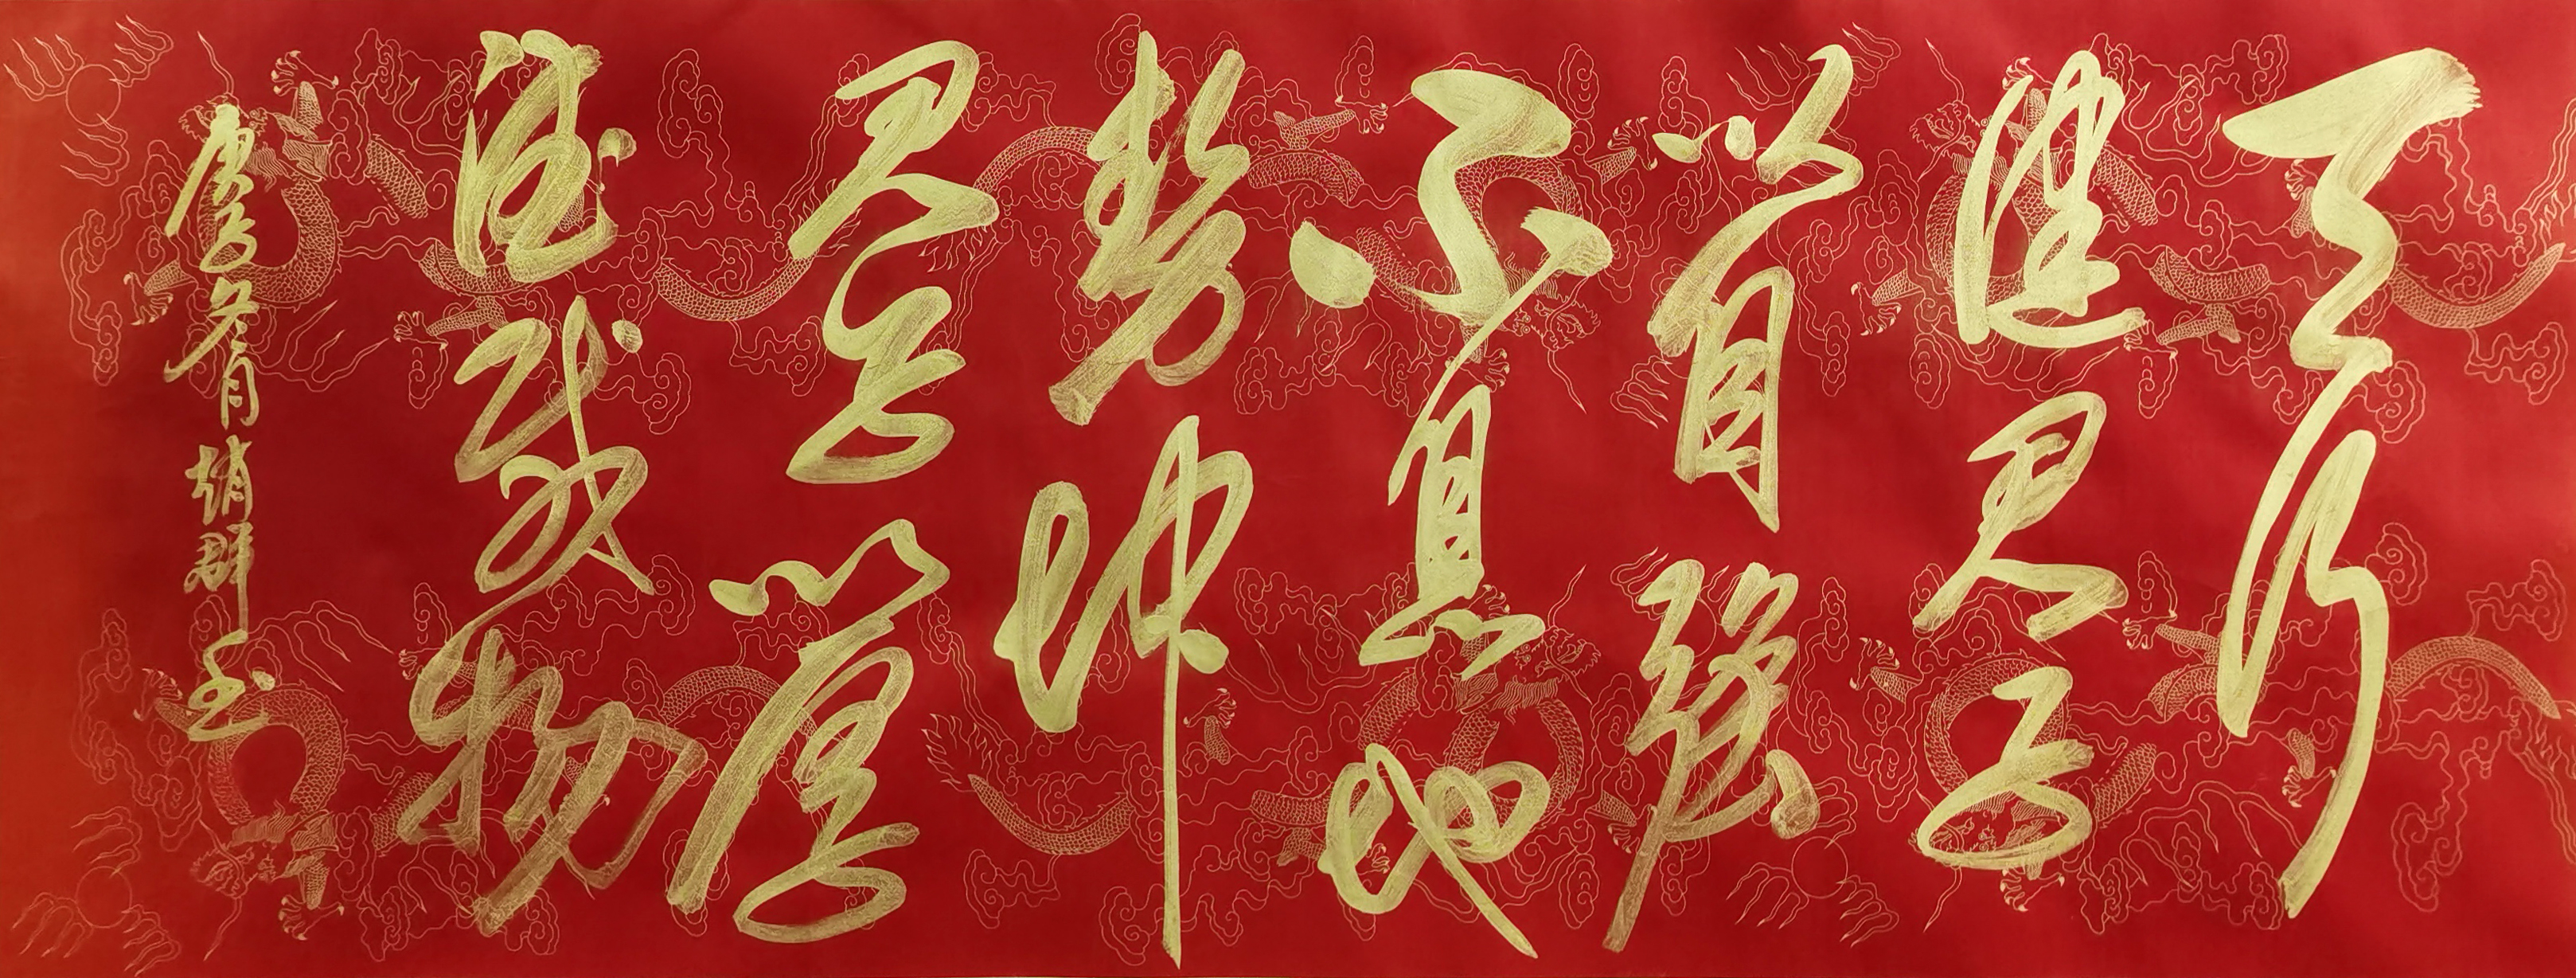 天行
健君子
以自強
不息地
勢坤
君子以厚
德載物
庚子冬月趙群书